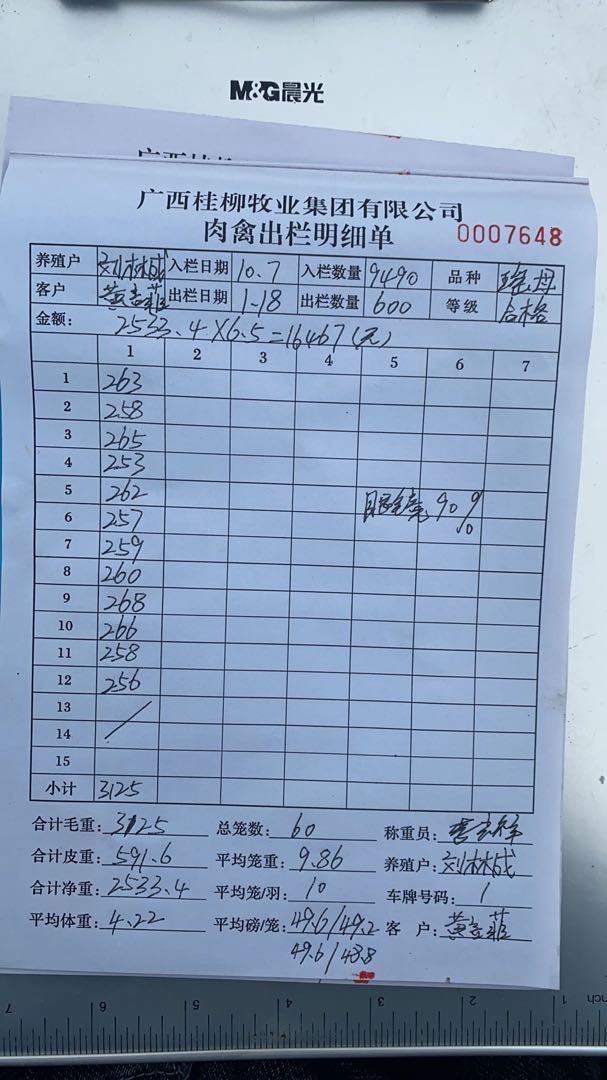 M&G晨光
广西桂柳牧业集团有限公司
肉禽出栏明细单 0007648
养殖户 刘林成 入栏日期 10.7 入栏数量 9490 品种
客户 黄 菲 出栏日期 1-18 出栏数量 600 等级 合格
金额: 2533.4×6.5=16467(元)
1 2 3 4 5 6 7
1 263
2 258
3 265
4 253
5 262 90%
6 257
7 259
8 260
9 268
10 266
11 258
12 256
13
14
15
小计 3125
合计毛重: 3125 总笼数: 60 称重员:
合计皮重: 591.6 平均笼重: 9.86 养殖户: 刘林成
合计净重: 2533.4 平均笼/羽: 10 车牌号码: 1
平均体重: 4.22 平均磅/笼: 49.6/49.2 客 户: 黄 菲
49.6/43.8
7 6 5 4 3 2 1 inch